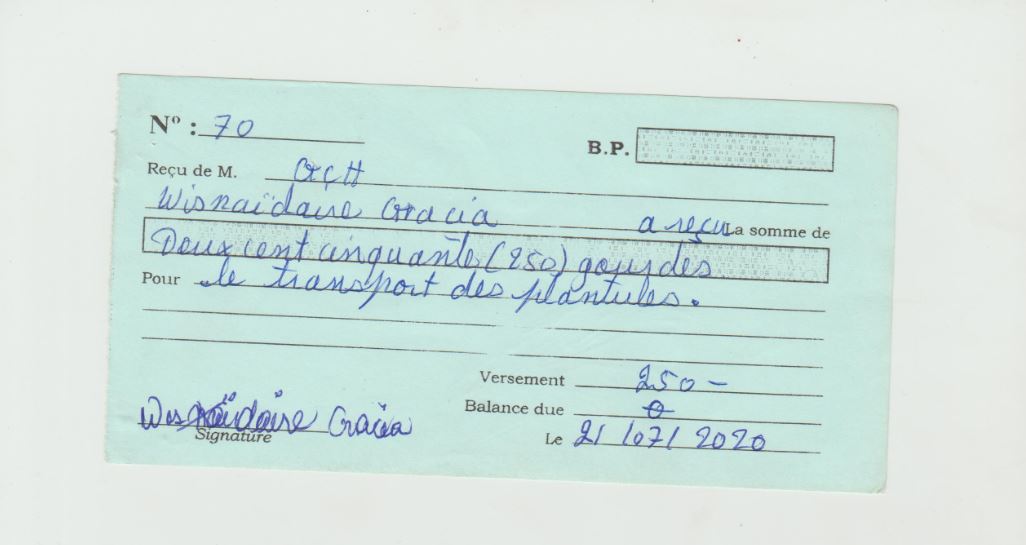 Nº : 70
B.P.
Reçu de M. OrçH
Wisnaïdaire Gracia a reçu La somme de
Deux cent cinquante (250) gourdes
Pour le transport des plantules.
Versement 250 -
Balance due 0
Wisnaïdaire Gracia
Signature
Le 21/07/2020